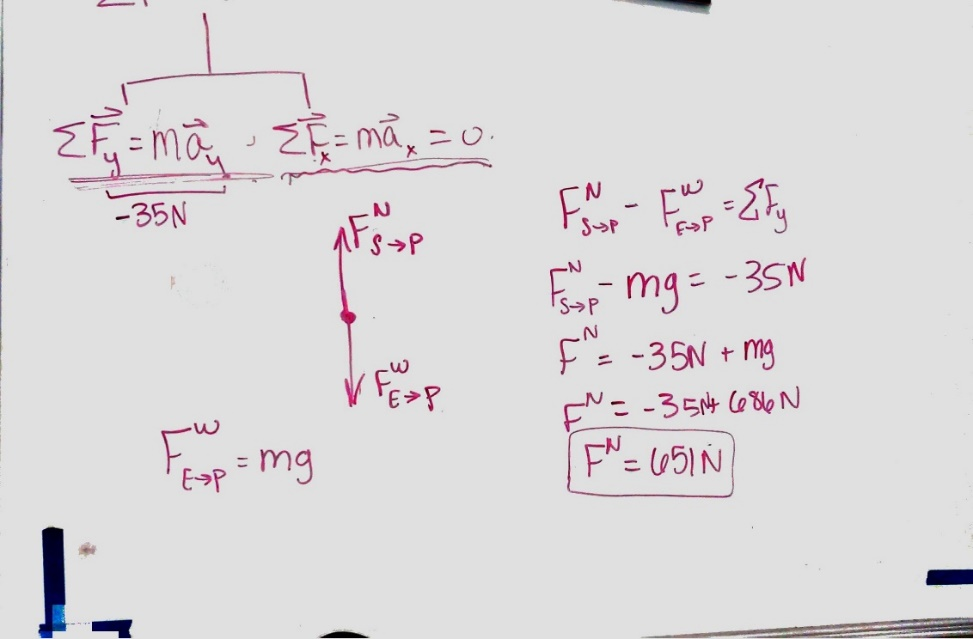 ΣF⃗_y = ma⃗_y , ΣF⃗_x = ma⃗_x = 0.
-35N
F^N_{S→P}
F^W_{E→P}
F^W_{E→P} = mg
F^N_{S→P} - F^W_{E→P} = ΣF_y
F^N_{S→P} - mg = -35N
F^N = -35N + mg
F^N = -35N + 686N
F^N = 651N